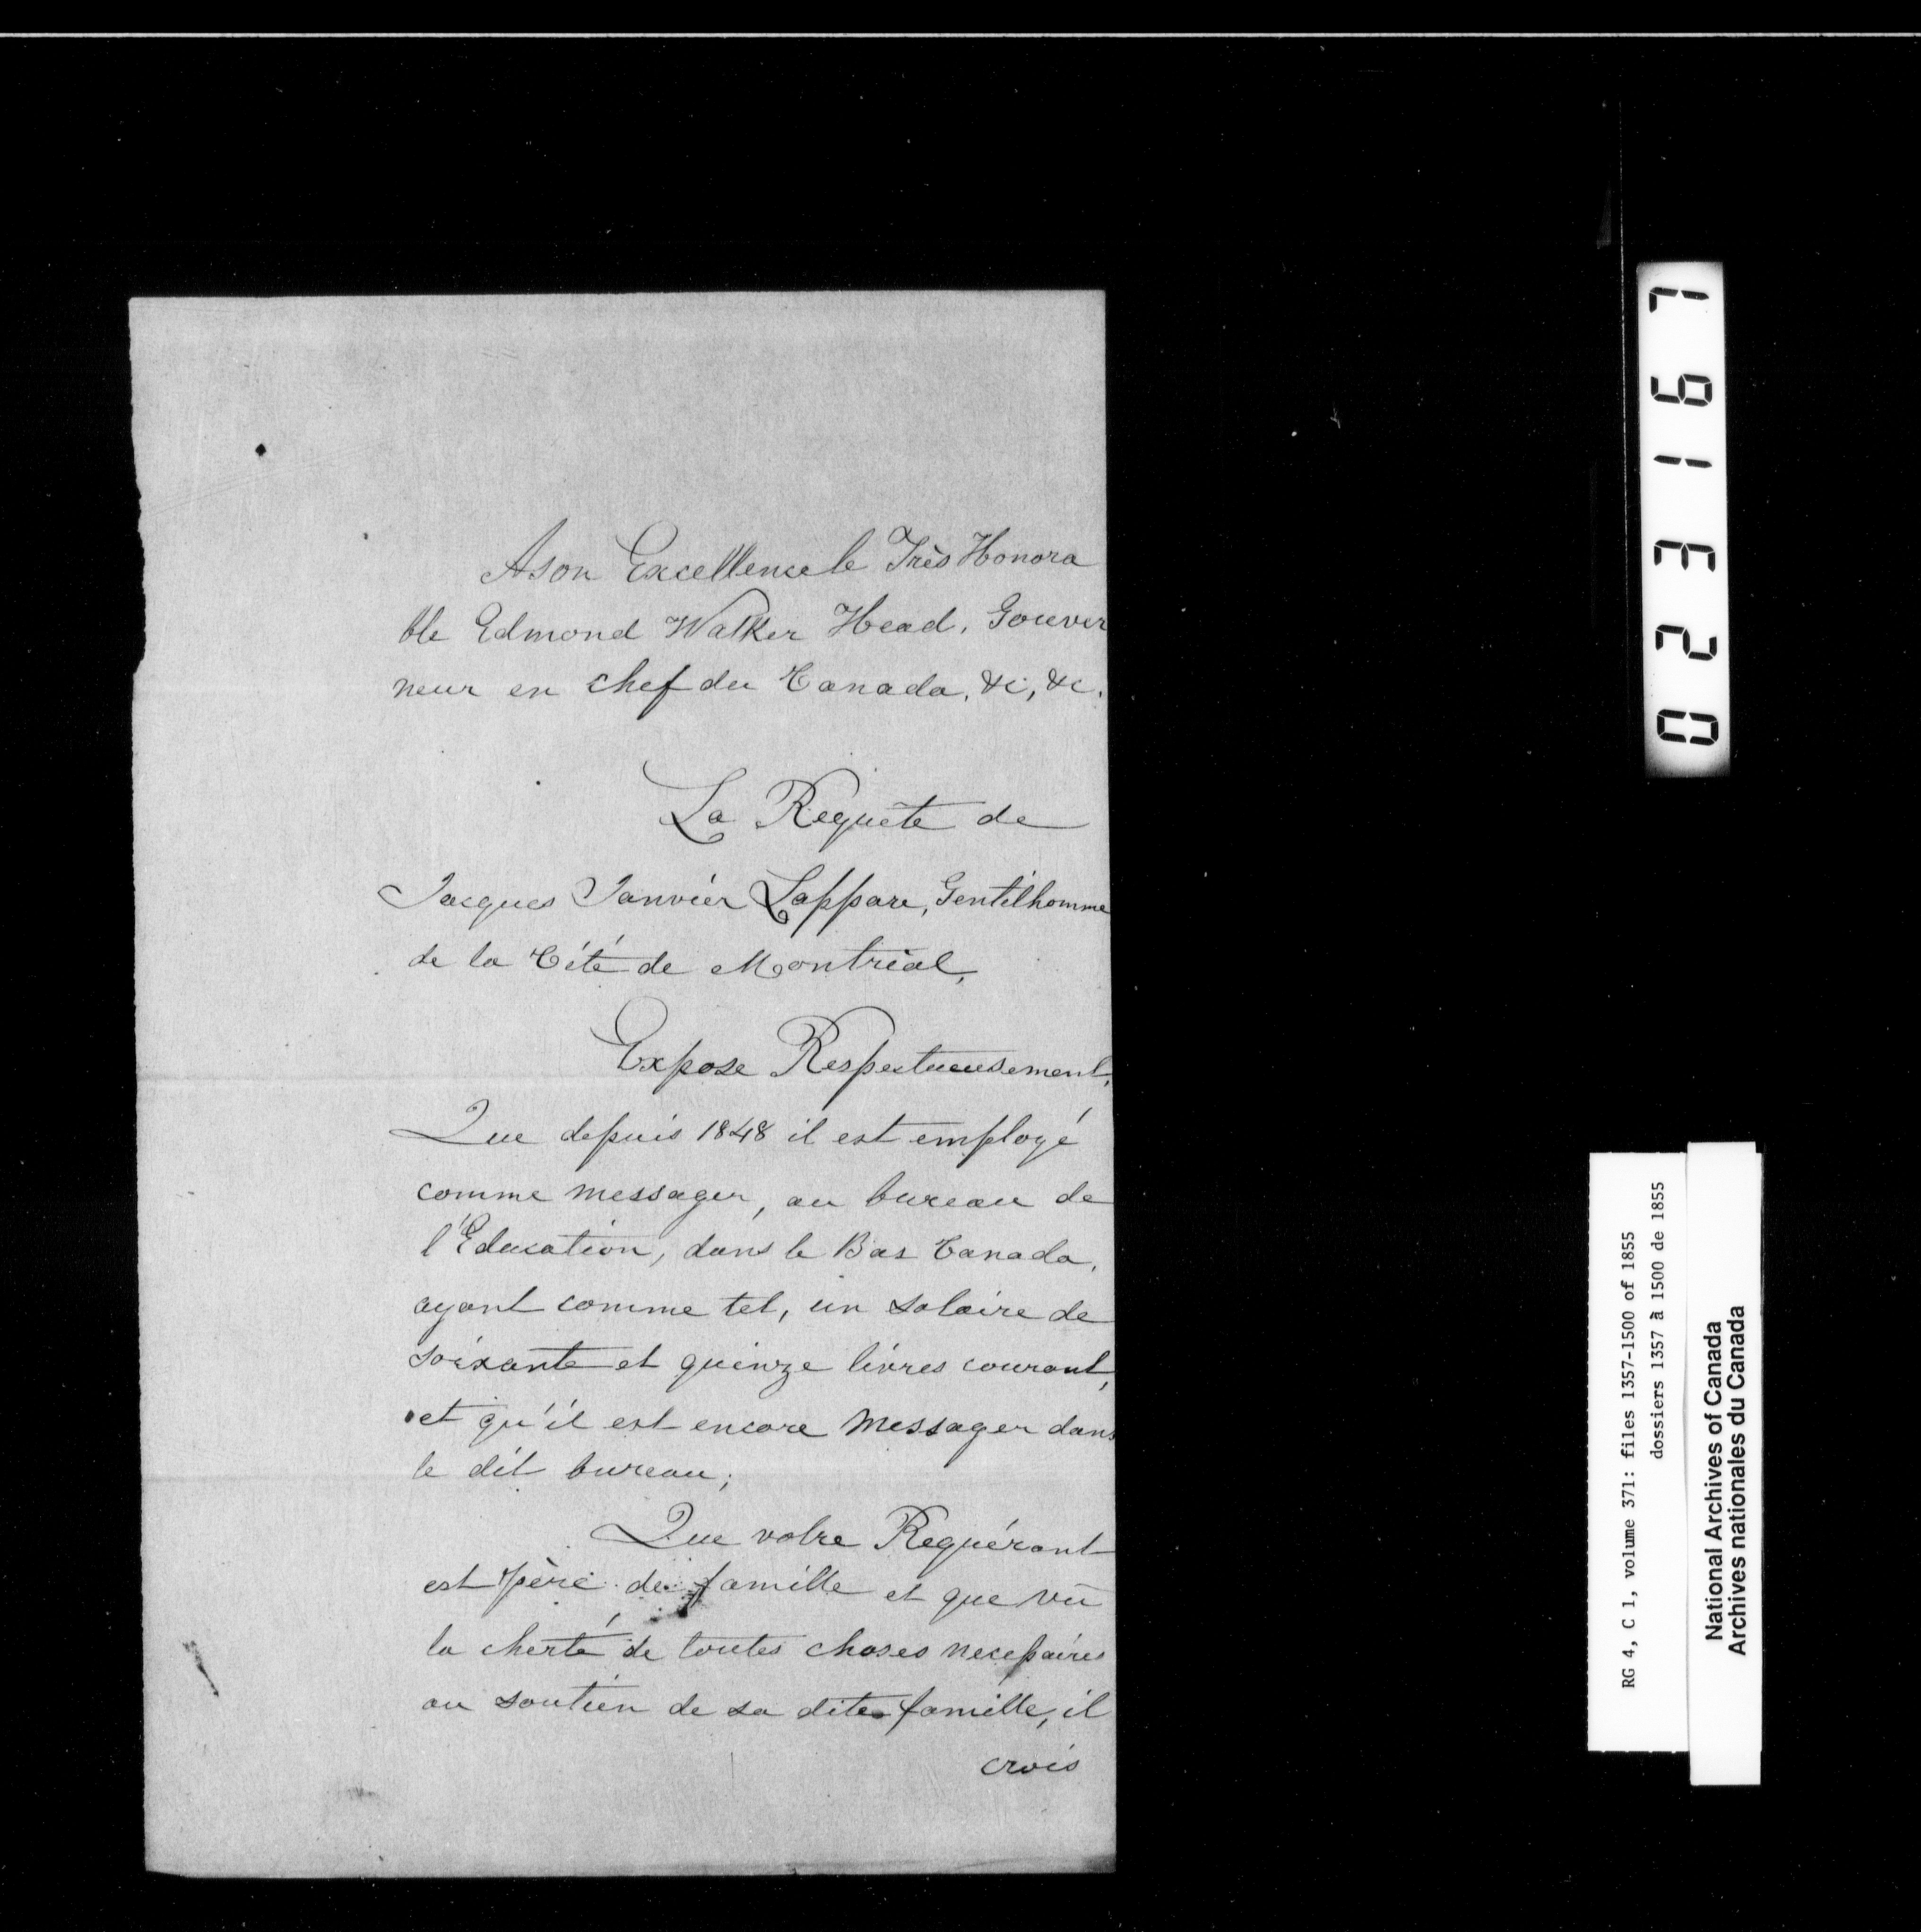 A son Excellence le Très Honora
ble Edmond Walker Head, Gouver
neur en chef du Canada, &c, &c.
La Requête de
Jacques Janvier Lappare, Gentilhomme
de la Cité de Montréal,
Expose Respectueusement,
Que depuis 1848 il est employé
comme messager, au bureau de
l'Education, dans le Bas Canada,
ayant comme tel, un salaire de
soixante et quinze livres courant,
et qu'il est encore messager dans
le dit bureau;
Que votre Requérant
est père de famille et que vû
la cherté de toutes choses necessaires
au soutien de sa dite famille, il
crois
023167
RG 4, C 1, volume 371: files 1357-1500 of 1855
dossiers 1357 à 1500 de 1855
National Archives of Canada
Archives nationales du Canada